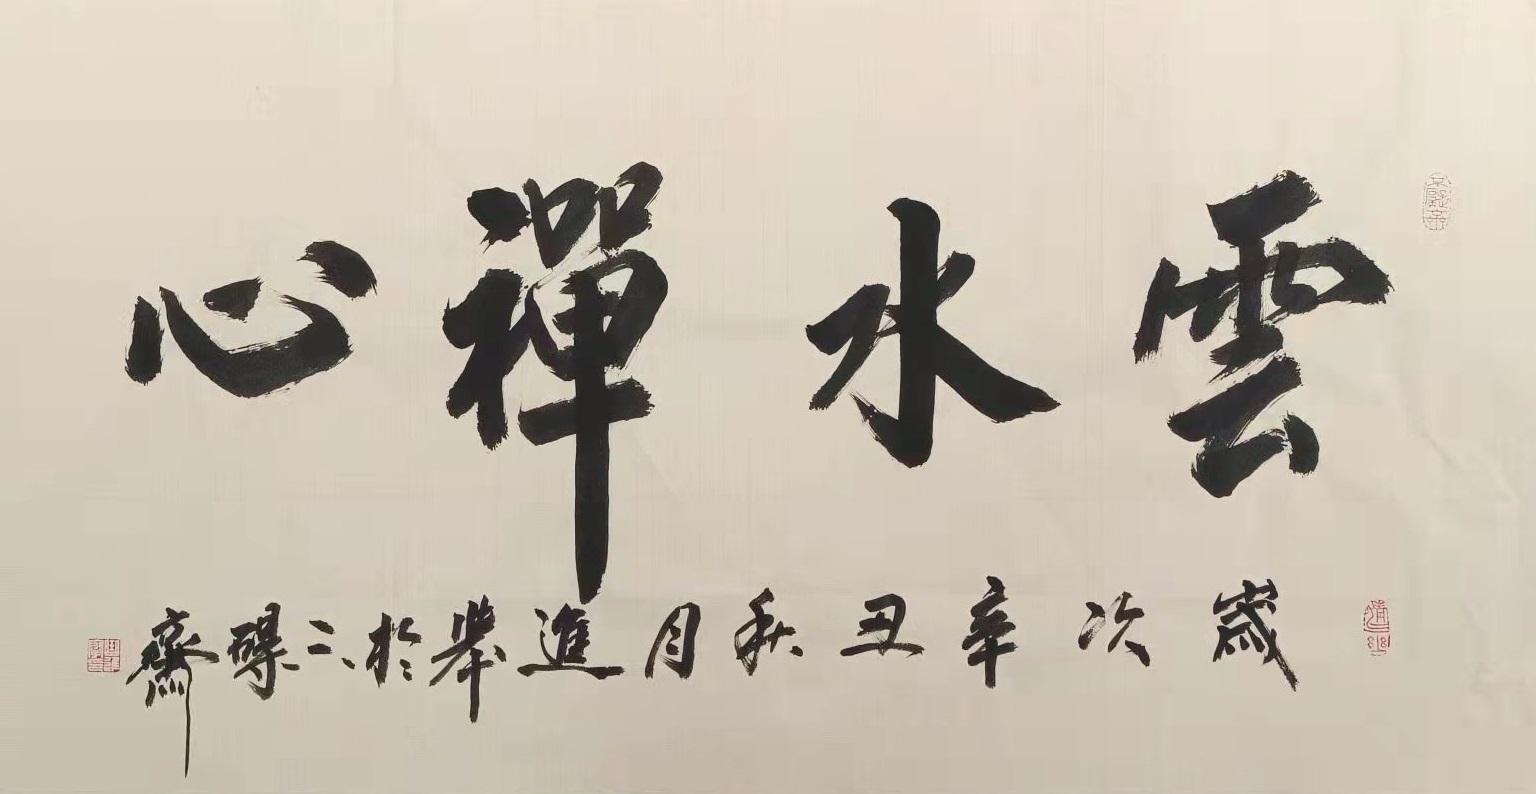 雲水禪心
歲次辛丑秋月進舉於二碍齋